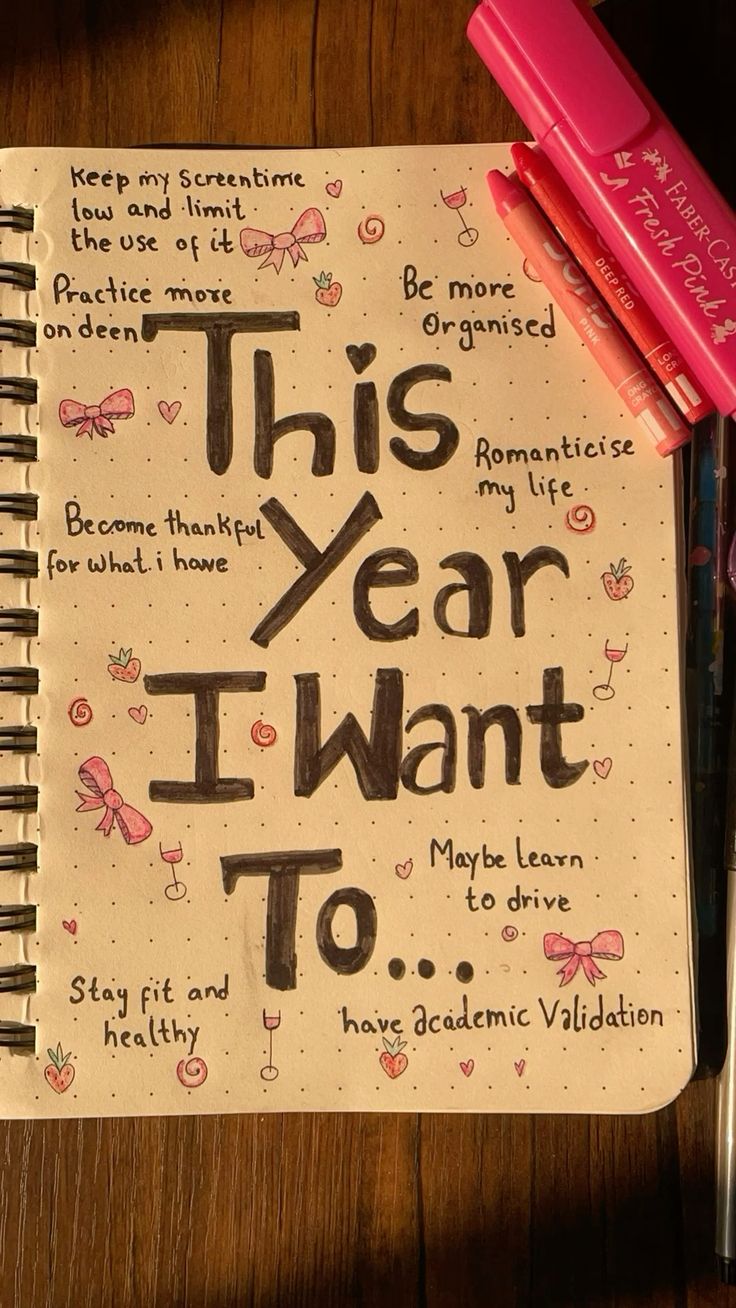 Keep my screentime
low and limit
the use of it
Practice more
on deen
Be more
Organised
This
Romanticise
my life
Become thankful
for what i have
Year
I Want
To...
Maybe learn
to drive
Stay fit and
healthy
have academic Validation
FABER-CAST
Fresh Pink
DEEP RED
PINK